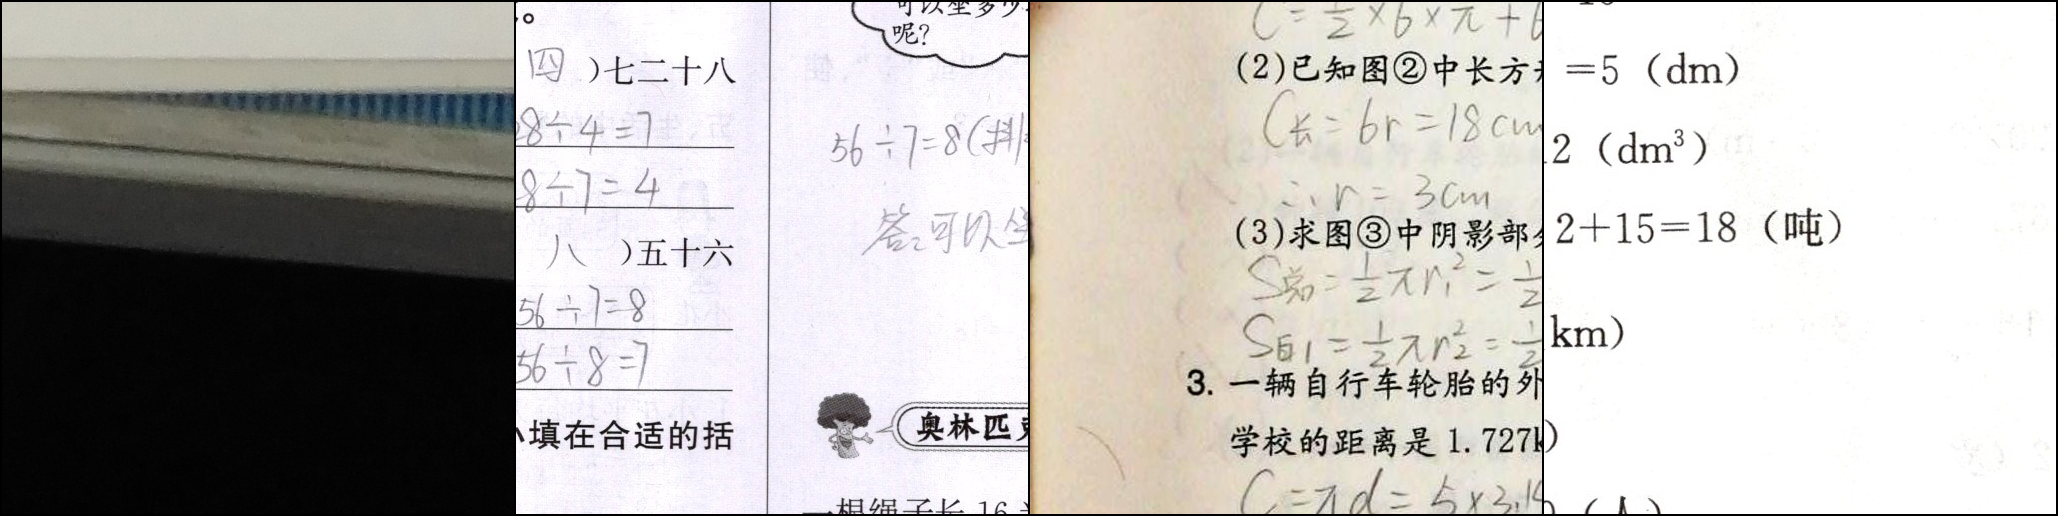 。
四 )七二十八
28÷4=7
8÷7=4
八 )五十六
56÷7=8
56÷8=7
填在合适的括
可以坐多少
呢?
56÷7=8(排
答:可以坐
奥林匹克
一根绳子长 16
C=½×6×π+6
(2)已知图②中长方形
C长=6r=18cm
∴r=3cm
(3)求图③中阴影部分
S总=½πr₁²=½
S白1=½πr₂²=½
3. 一辆自行车轮胎的外
学校的距离是 1.727k
C=πd=5×3.14
=5（dm）
2（dm³）
2+15=18（吨）
km）
）
（人）